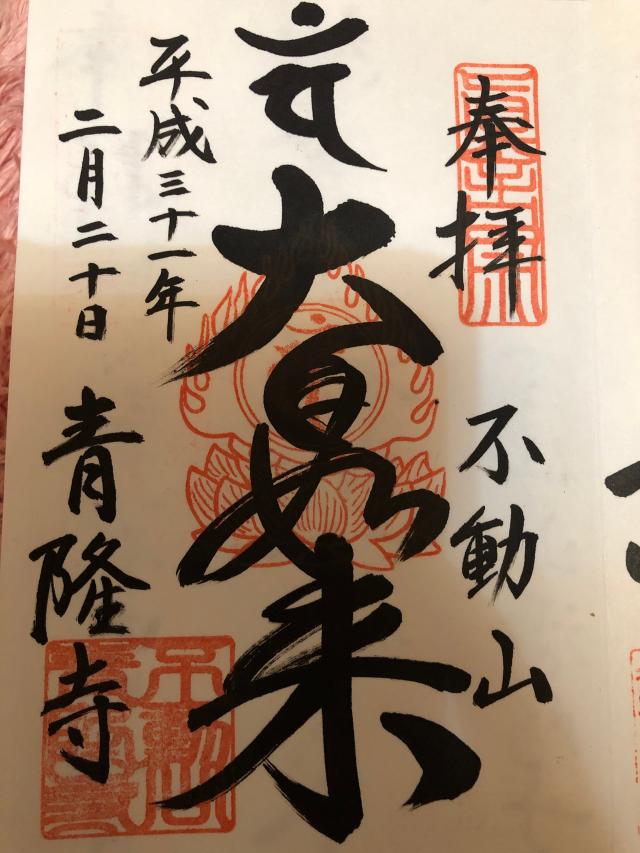 奉拝
不動山
大日如来
平成三十一年
二月二十日
青隆寺